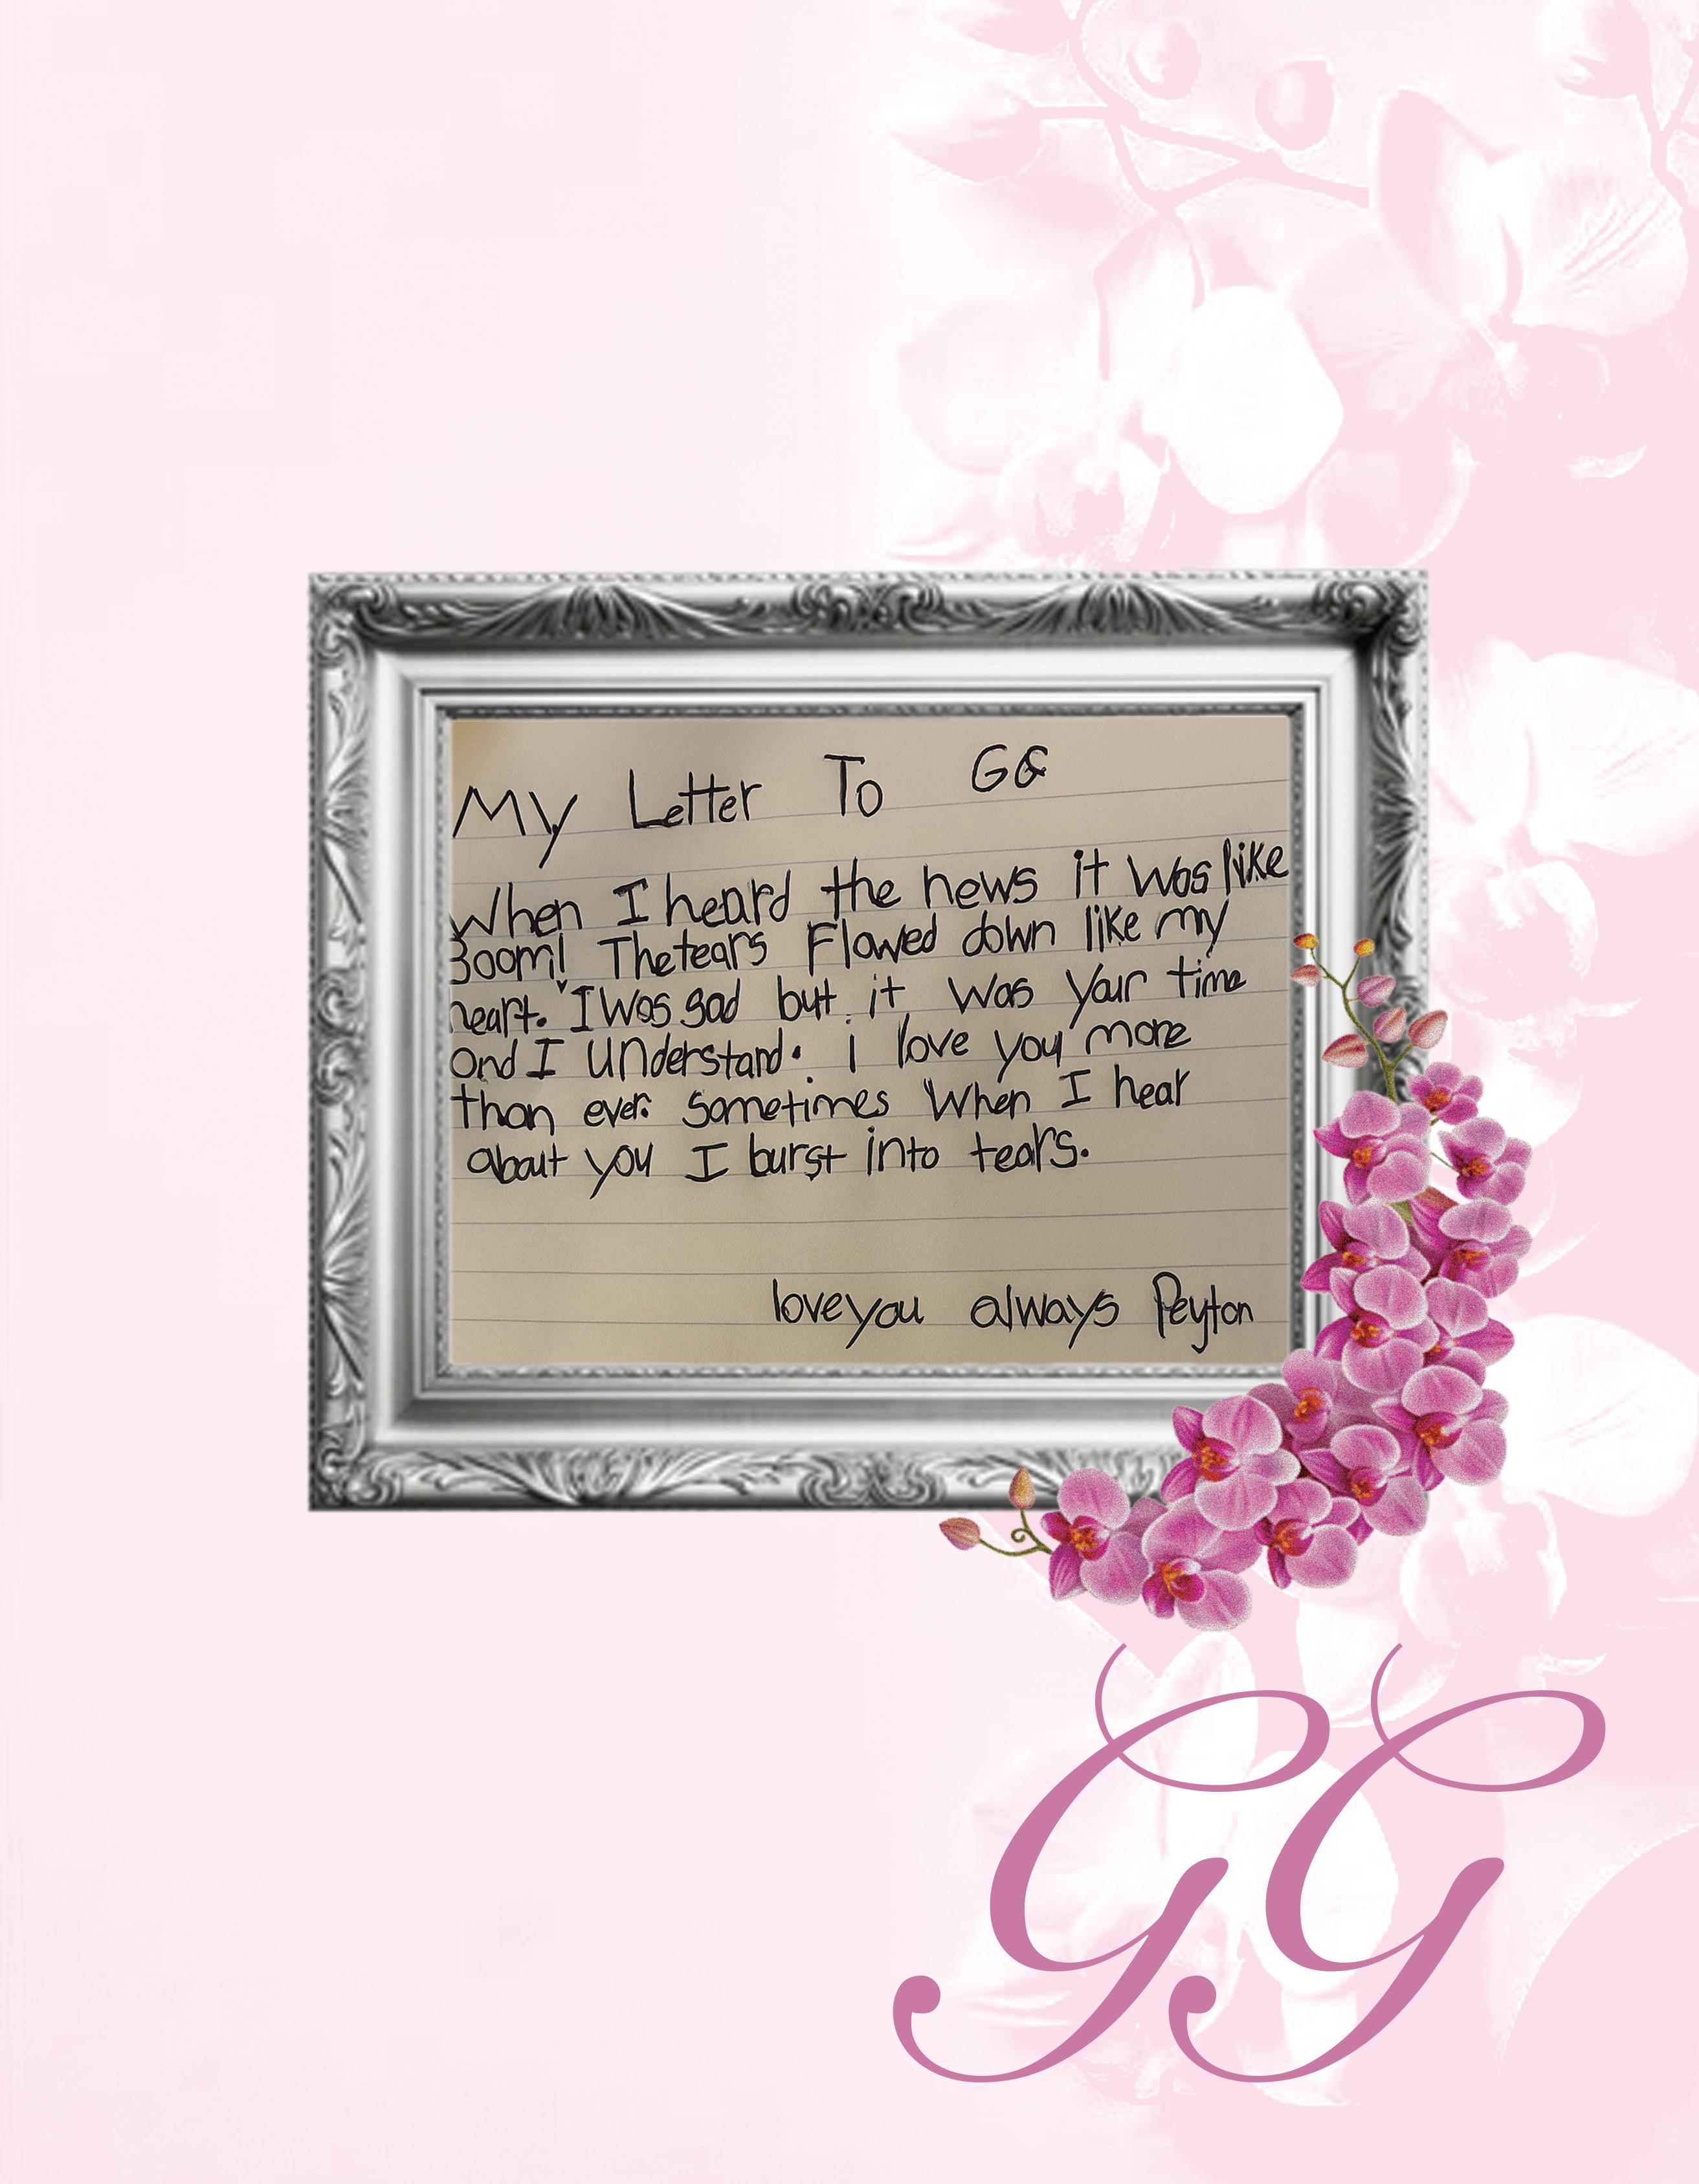 My Letter To GG
When I heard the news it was like
Boom! The tears Flowed down like my
heart. I was sad but it was your time
and I understand. i love you more
than ever. Sometimes When I hear
about you I burst into tears.
love you always Peyton
GG